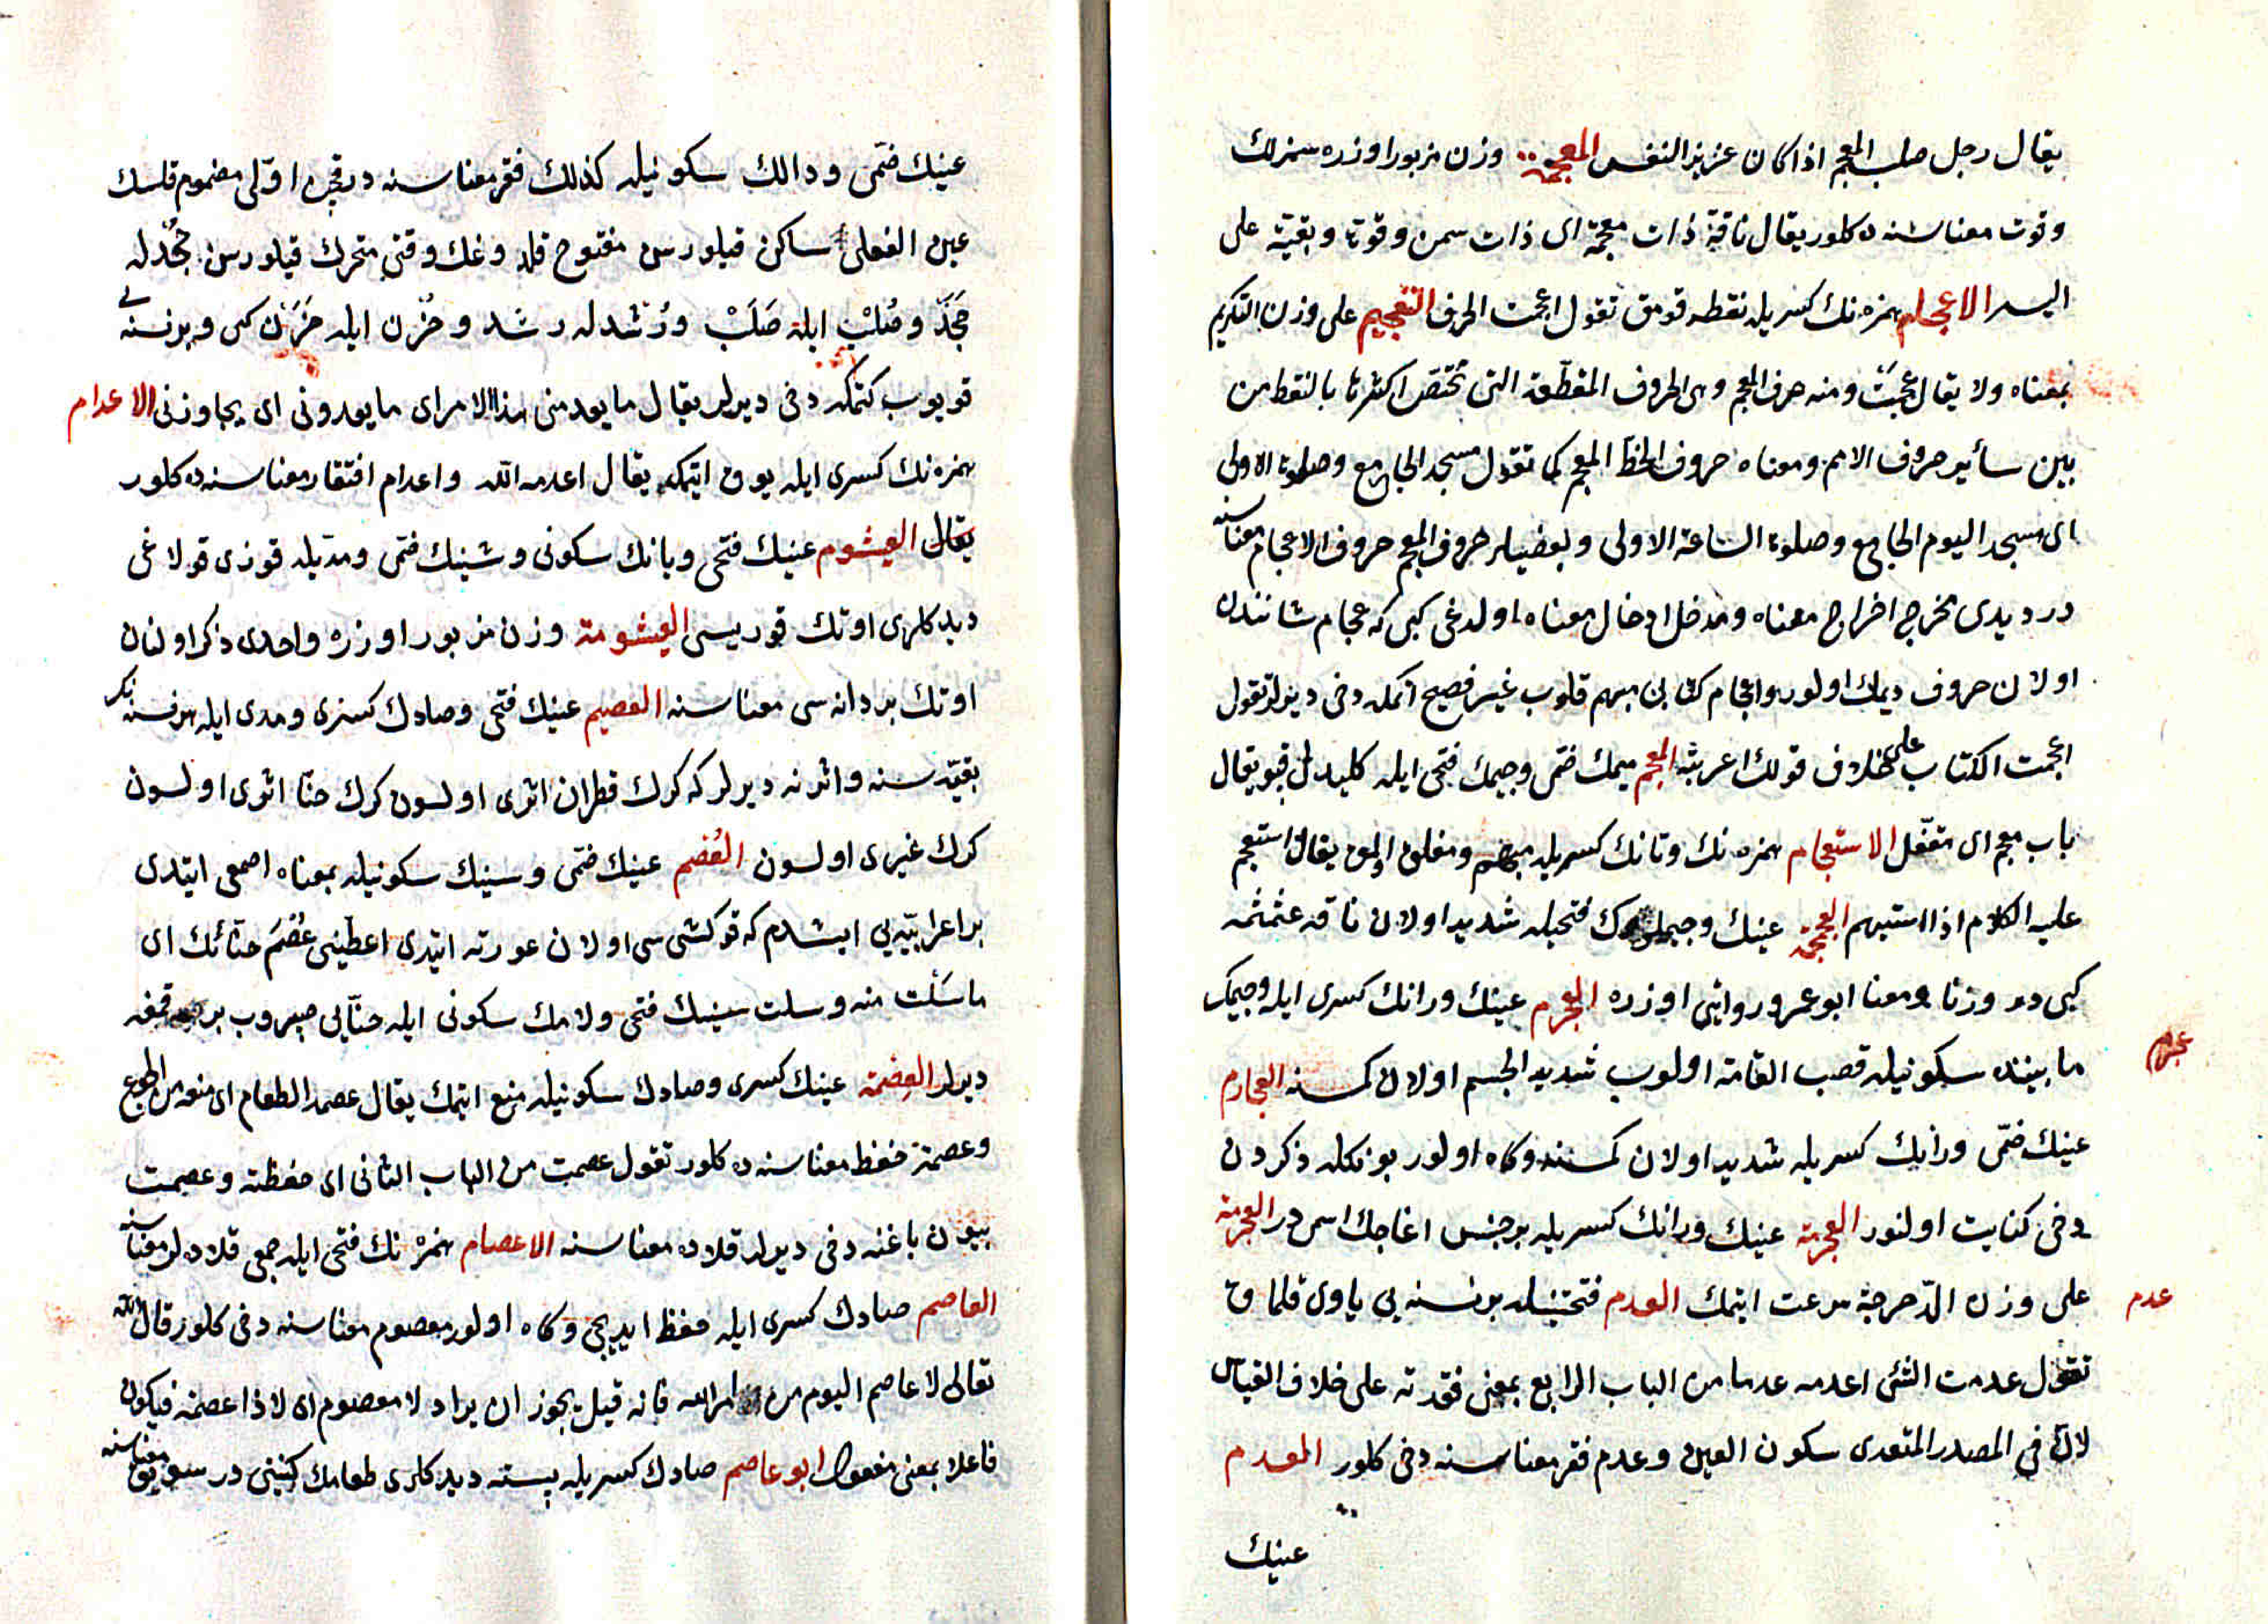 يقال رجل صلب المعجم اذا كان عزيز النفس المعجمة وزن مزبور اوزره سمزلك
وقوت معناسنه ده كلور يقال ناقة ذات معجمة اى ذات سمن وقوة وبقية على
السير الاعجام همزه نك كسريله نقطه قومق تقول اعجمت الحرف التعجيم على وزن التكريم
بمعناه ولا يقال عجمت ومنه حرف المعجم وهى الحروف المقطعة التى تختص اكثرها بالنقط من
بين سائر حروف الامم ومعناه حروف الخط المعجم كما تقول مسجد الجامع وصلوة الاولى
اى مسجد اليوم الجامع وصلوة الساعة الاولى وبعضيلر حروف المعجم حروف الاعجام معناسنه
در ديدى مخرج اخراج معناه ومدخل ادخال معناه اولدغى كبى كه عجام شانندن
اولان حروف ديمك اولور واعجام كتابى مبهم قلوب غير فصيح اتمكه دخى ديرلر تقول
اعجمت الكتاب على خلاف قولك اعربته المعجم ميمك ضمى وجيمك فتحى ايله كليدلى قپو يقال
باب معجم اى مقفل الاستعجام همزه نك وتانك كسريله مبهم ومغلق اولمق يقال استعجم
عليه الكلام اذا استبهم العجمجمة عينك وجيملرك فتحيله شديد اولان ناقه عثمثمه
كبى در وزنا ومعنا ابو عمرو روايتى اوزره العجرم عينك ورانك كسرى ايله وجيمك
عجرم
مابينده سكونيله قصب القامة اولوب شديد الجسم اولان كمسنه العجارم
عينك ضمى ورانك كسريله شديد اولان كمسنه وكاه اولور بونكله ذكردن
دخى كنايت اولنور العجرمة عينك ورانك كسريله بر جنس اغاجك اسمى در العجرمة
على وزن الدحرجة سرعت ايتمك العدم فتحتينله بر نسنه يى ياوى قلمق
عدم
تقول عدمت الشئ اعدمه عدما من الباب الرابع بمعنى فقدته على خلاف القياس
لان فى المصدر المتعدى سكون العين وعدم فقر معناسنه دخى كلور العدم
عينك
عينك ضمى ودالك سكونيله كذلك فقر معناسنه در قچن اولى مضموم قلسك
عين الفعلى ساكن قيلورسن مفتوح قلدوغك وقتى متحرك قيلورسن جحدله
جحد وصلب ايله صلب ورشدله رشد وحزن ايله حزن كبى وبر نسنه يى
قويوب كتمكه دخى ديرلر يقال ما يعدمنى هذا الامر اى ما يعدونى اى يجاوزنى الاعدام
همزه نك كسرى ايله يوق ايتمك يقال اعدمه الله واعدام افتقار معناسنه ده كلور
يقال العيشوم عينك فتحى ويانك سكونى وشينك ضمى ومديله قوزى قولاغى
ديدكلرى اوتك قوريسى العيشومة وزن مزبور اوزره واحدى ذكر اولنان
اوتك بر دانه سى معناسنه العصيم عينك فتحى وصادك كسرى ومدى ايله هر نسنه نك
بقيه سنه واثرنه ديرلر كه كرك قطران اثرى اولسون كرك حنا اثرى اولسون
كرك غيرى اولسون العصم عينك ضمى وسينك سكونيله بمعناه اصمعى ايتدى
بر اعرابيه يى ايشتدم كه قوكشى سى اولان عورته ايتدى اعطينى عصم حنائك اى
ما سلت منه وسلت سينك فتحى ولامك سكونى ايله حنايى صيروب برقمغه
ديرلر العصمة عينك كسرى وصادك سكونيله منع ايتمك يقال عصمه الطعام اى منعه من الجوع
وعصمة حفظ معناسنه ده كلور تقول عصمت من الباب الثانى اى حفظته وعصمت
بيون باغنه دخى ديرلر قلاده معناسنه الاعصام همزه نك فتحى ايله جمعى قلاده لر معناسنه
العاصم صادك كسرى ايله حفظ ايديجى وكاه اولور معصوم معناسنه دخى كلور قال الله
تعالى لا عاصم اليوم من امر الله فانه قيل يجوز ان يراد لا معصوم اى لا ذا عصمة فيكون
فاعلا بمعنى مفعول ابو عاصم صادك كسريله بسته ديدكلرى طعامك كنيتى در سويق معناسنه